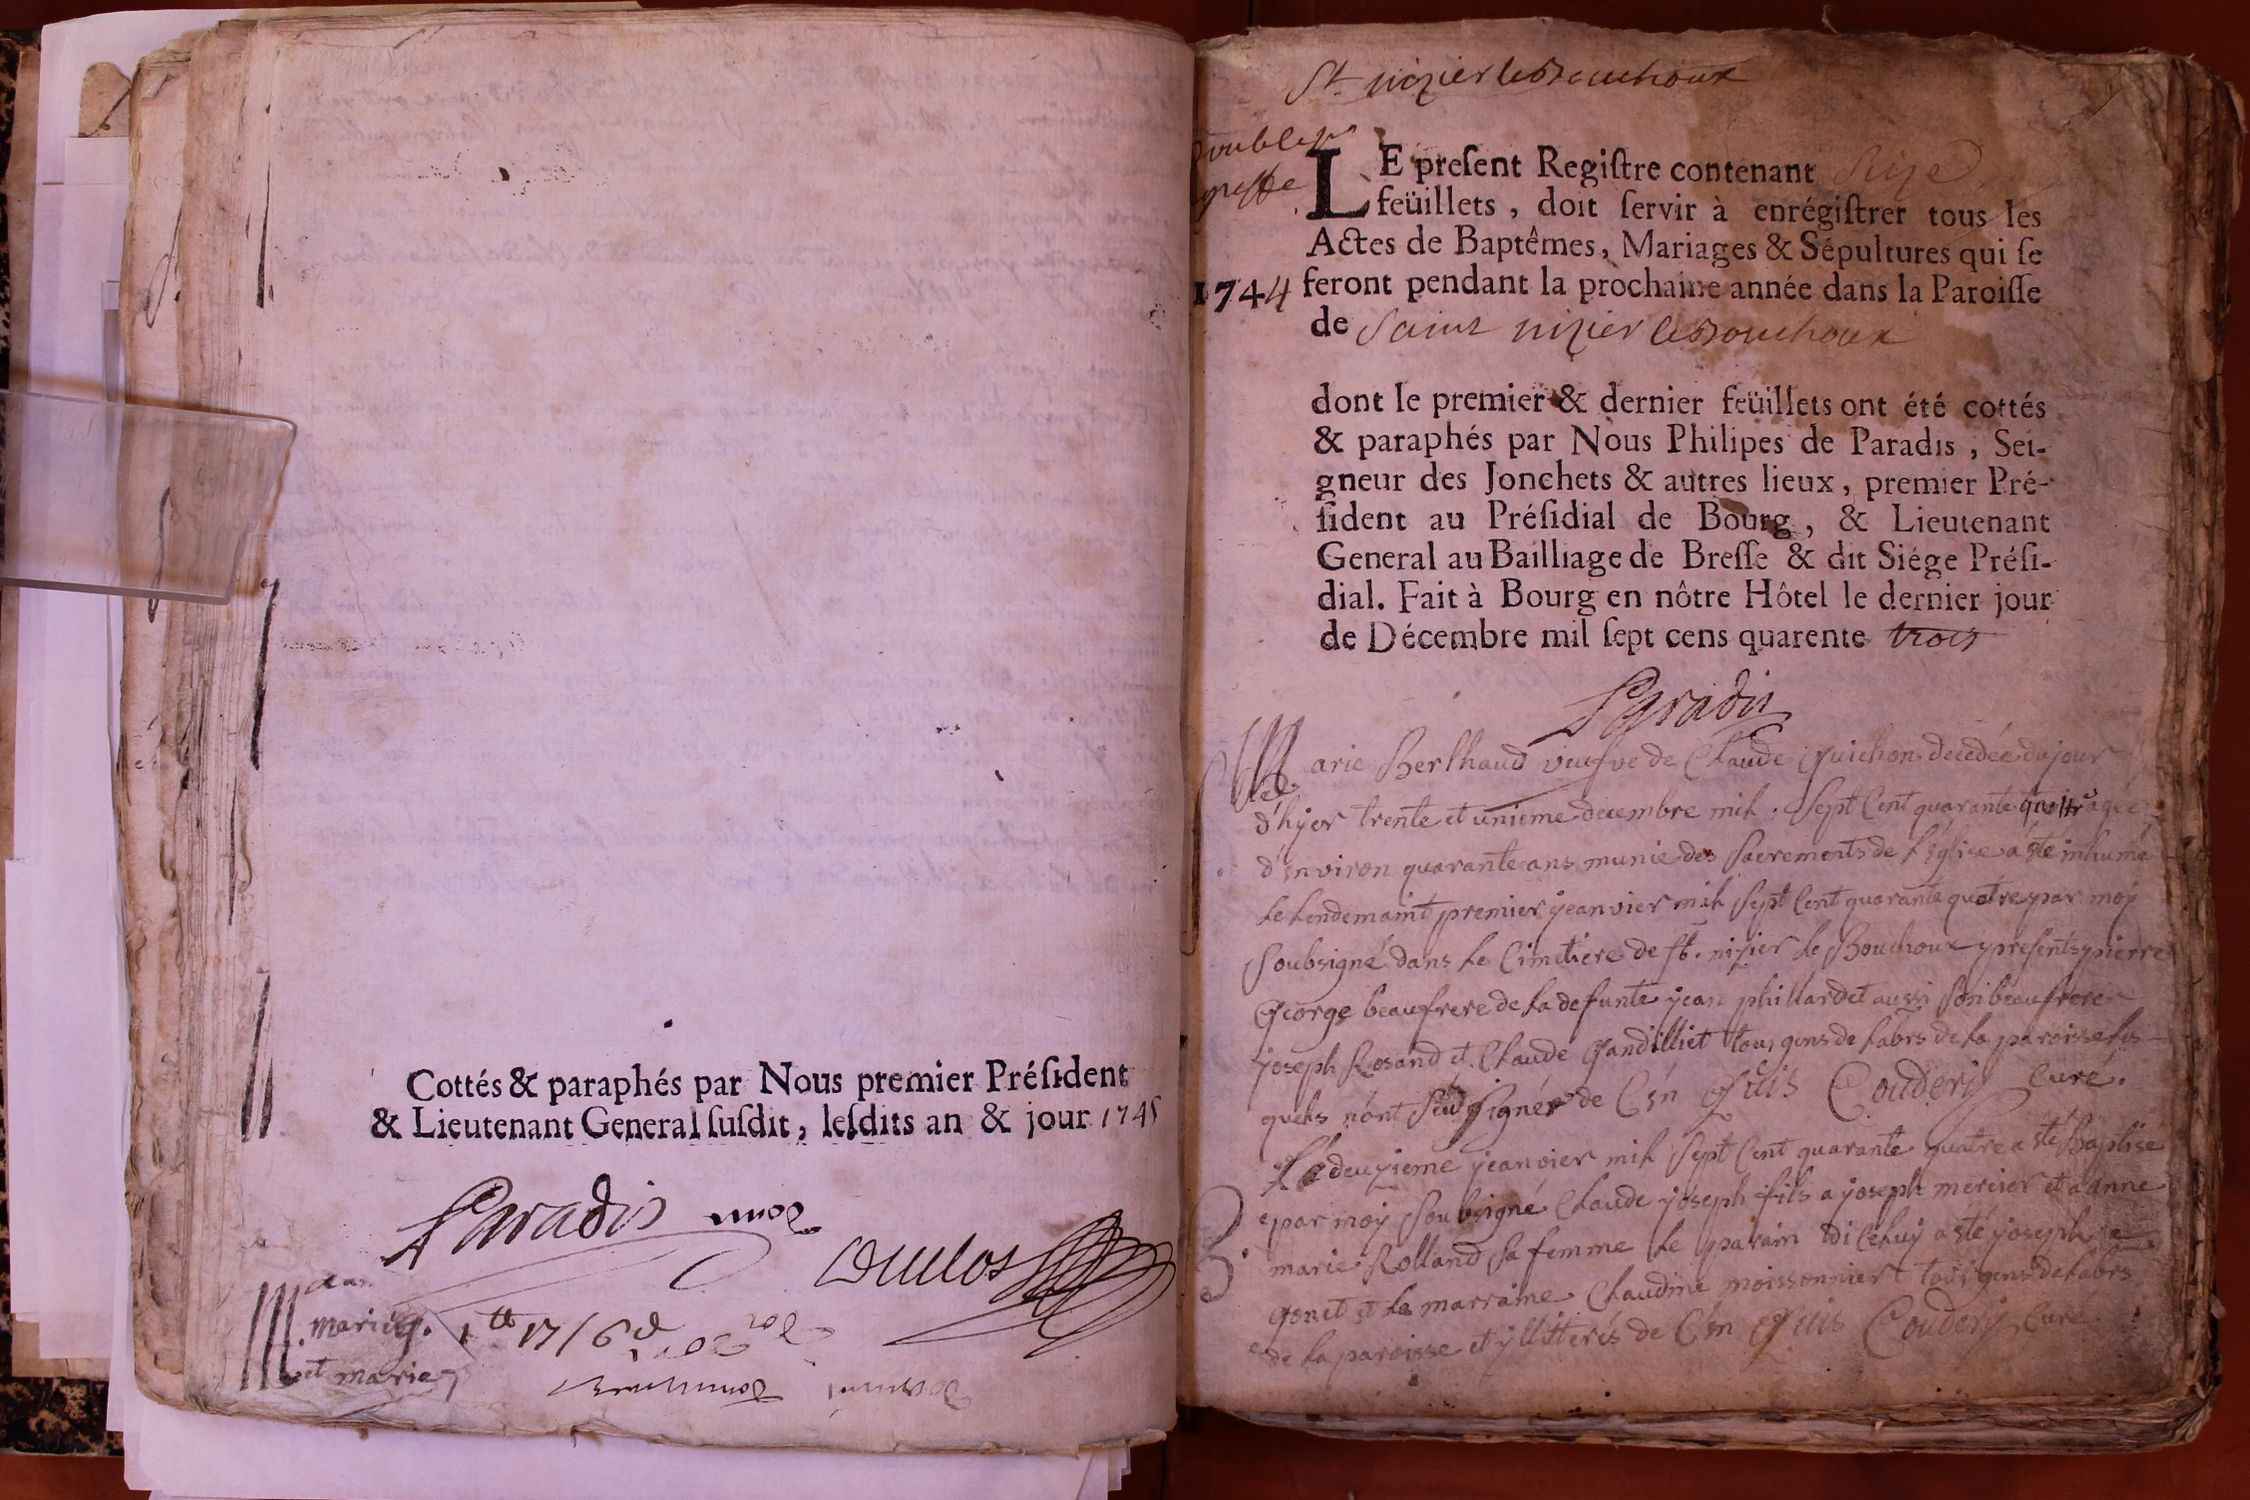 Cottés & paraphés par Nous premier Préſident
& Lieutenant General ſuſdit, leſdits an & jour 1745
Paradis
Duclos
marie
et marie
1tt 17/6d
St nizier le Bouchoux
double
greffe
LE preſent Regiſtre contenant Seize
feüillets, doit ſervir à enrégiſtrer tous les
Actes de Baptêmes, Mariages & Sépultures qui ſe
1744 feront pendant la prochaine année dans la Paroiſſe
de Saint nizier le Bouchoux
dont le premier & dernier feüillets ont été cottés
& paraphés par Nous Philipes de Paradis, Sei-
gneur des Jonchets & autres lieux, premier Pré-
ſident au Préſidial de Bourg, & Lieutenant
General au Bailliage de Breſſe & dit Siége Préſi-
dial. Fait à Bourg en nôtre Hôtel le dernier jour
de Décembre mil ſept cens quarente trois
Paradis
Marie Berthaud veufve de Claude Guichon decedée du jour
d'hyer trente et unieme decembre mil sept Cent quarante agée
d'Environ quarante ans munie des Sacrements de L'Eglise a été inhumé
le Lendemaint premier jeanvier mil sept Cent quarante quatre par moy
soubsigné dans le Cimetiere de st. nizier le Bouchoux presents pierre
George beaufrere de la defunte jean phillardet aussi son beaufrere
joseph Rosand et Claude Gandilliet tous gens de Labrs de la paroisse les
quels n'ont Seu signer de Coudery Curé.
Le deuxieme jeanvier mil Sept Cent quarante quatre a eté Baptisé
par moy Soubsigné Claude joseph fils a joseph mercier et a anne
B. marie Rolland sa femme le parain d'iceluy a eté joseph
gonet et la marraine Claudine moissonnier tous gens de Labrs
de la paroisse et yllitterés de Couderÿ Curé